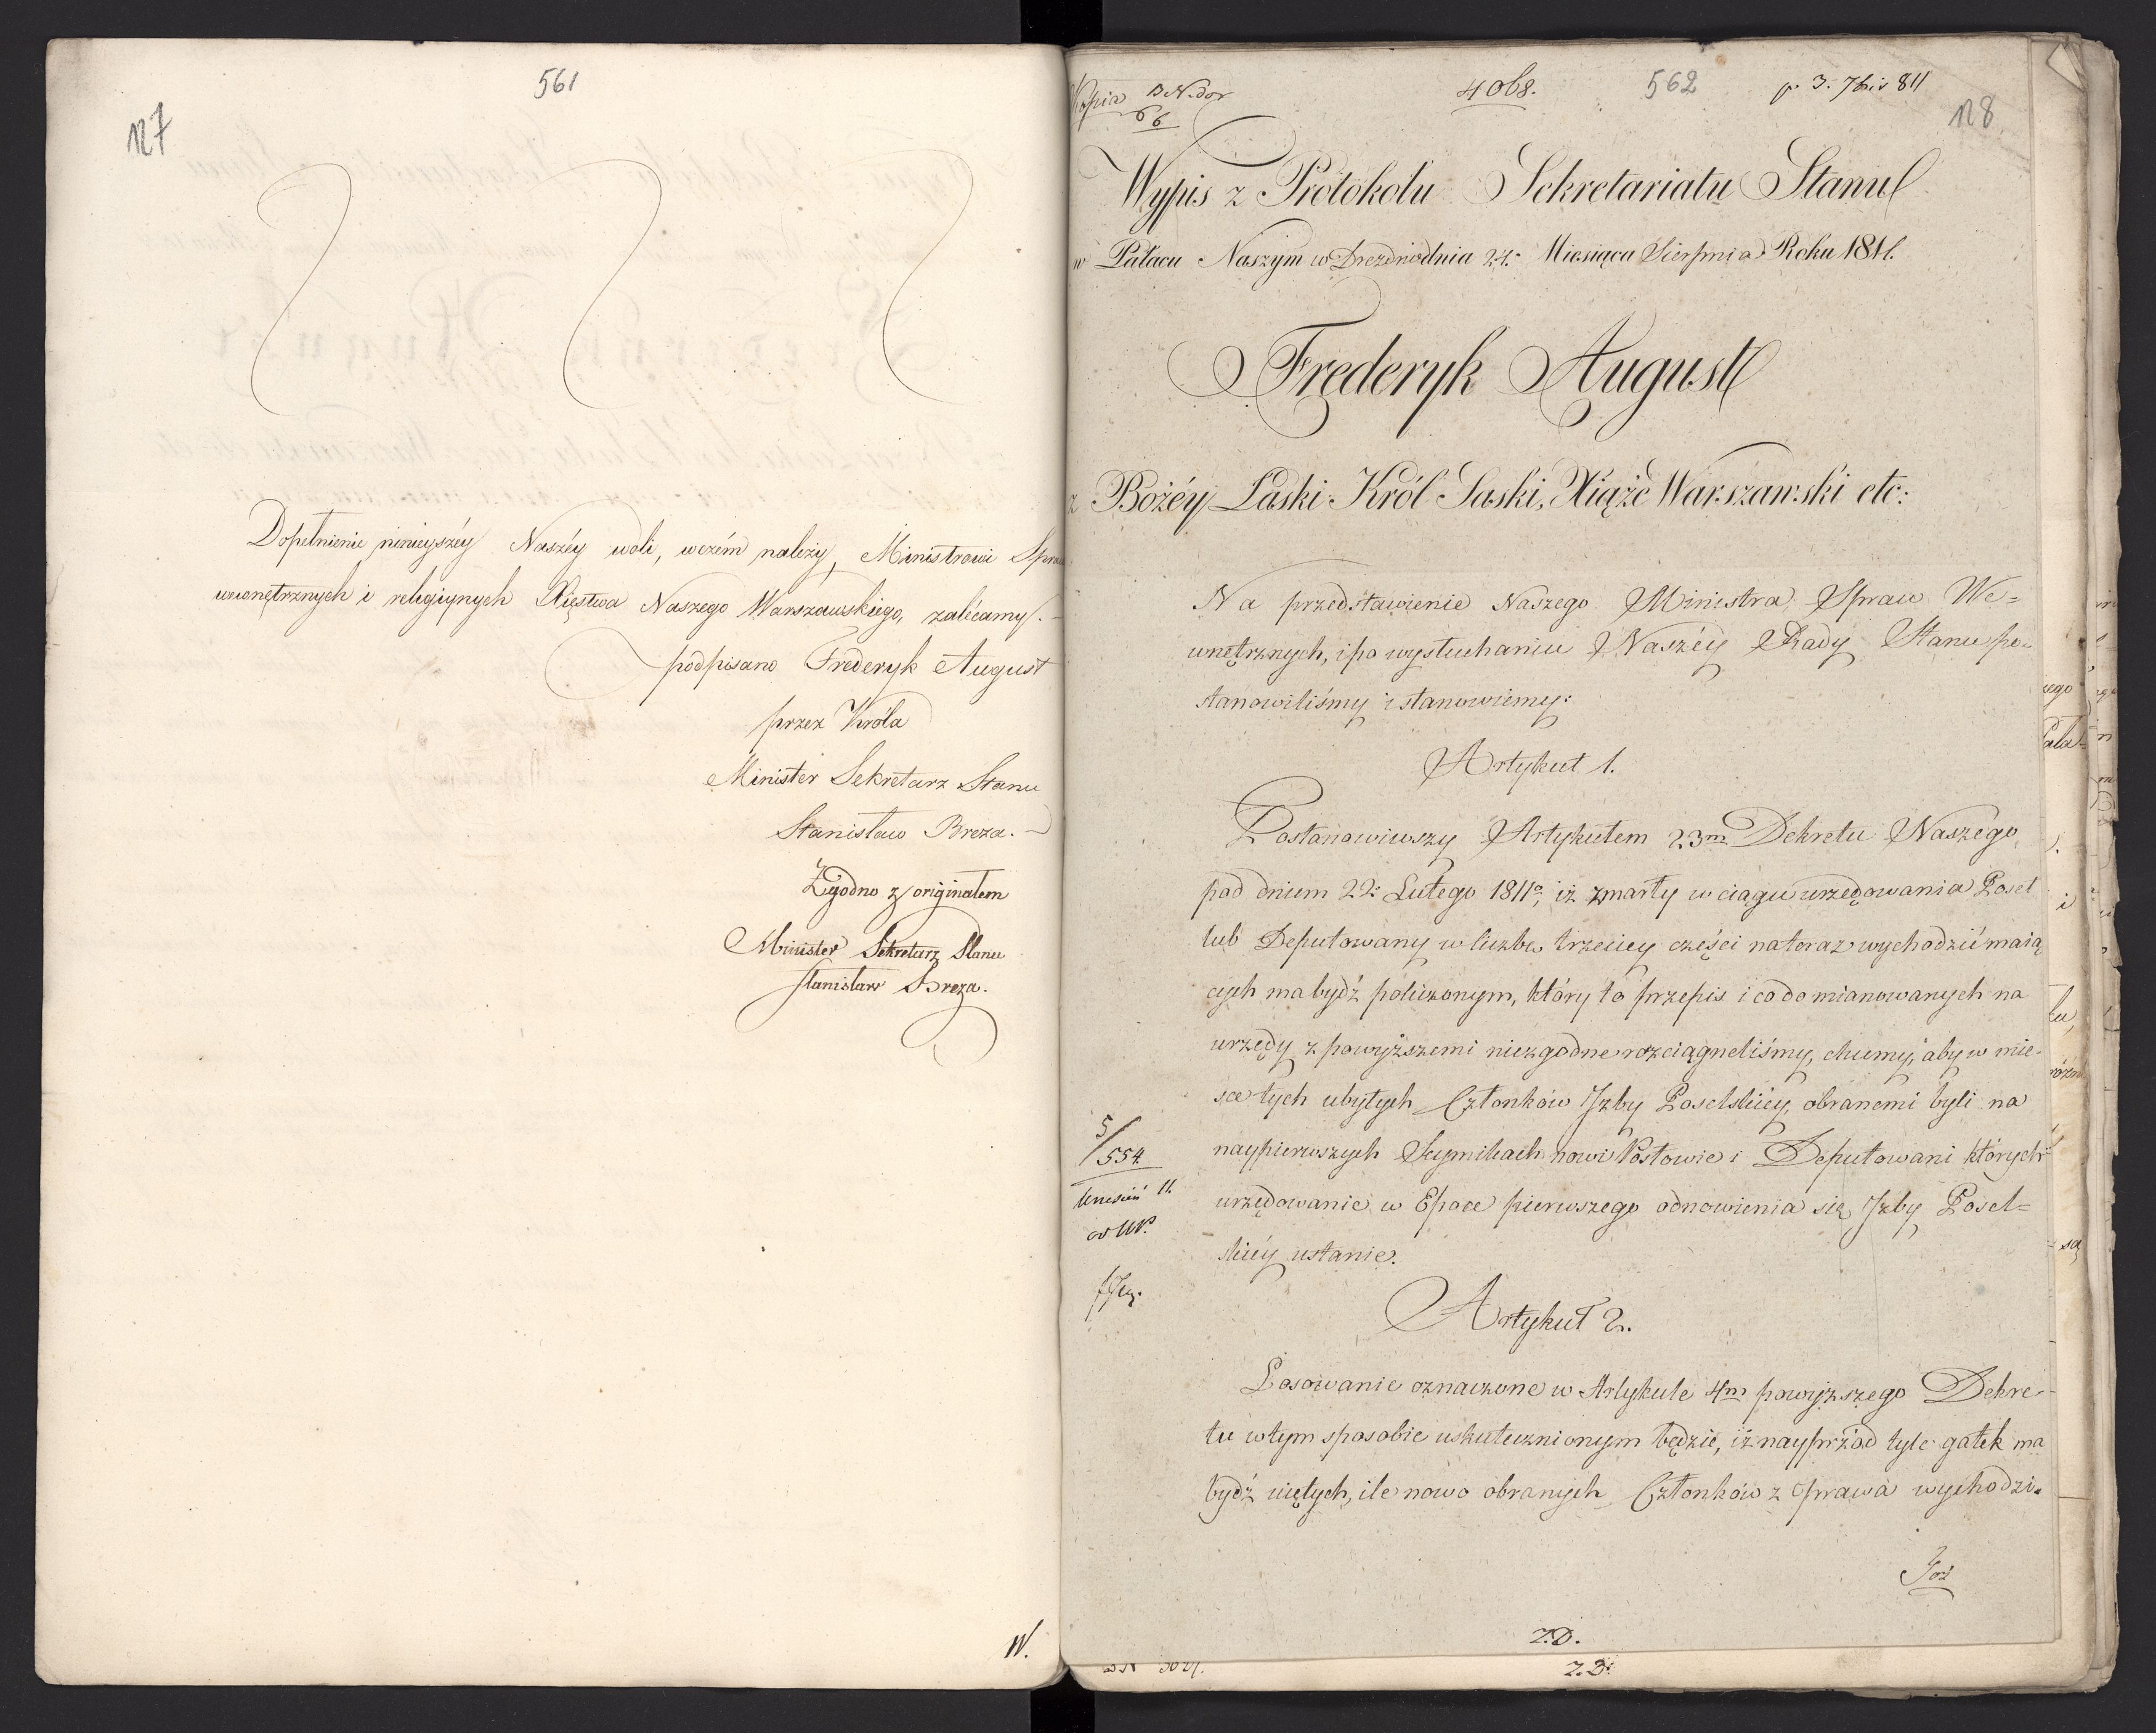 561
127
Dopełnienie ninieyszéy Naszéy woli, w czém należy, Ministrowi Spraw
wewnętrznych i religiynych Xięstwa Naszego Warszawskiego, zalécamy.
podpisano Frederyk August
przez Króla
Minister Sekretarz Stanu
Stanisław Breza.
Zgodno z originałem
Minister Sekretarz Stanu
Stanisław Breza.
W.
Kopia
66
4068.
562
128
Wypis z Protokołu Sekretariatu Stanu
w Pałacu Naszym w Dreźnie dnia 24. Miesiąca Sierpnia Roku 1811.
Frederyk August
z Bożéy Łaski Król Saski, Xiążę Warszawski etc:
Na przedstawienie Naszego Ministra Spraw We=
wnętrznych, i po wysłuchaniu Naszéy Rady Stanu po=
stanowiliśmy i stanowiemy:
Artykuł 1.
Postanowiwszy Artykułem 23m Dekretu Naszego
pod dniem 22: Lutego 1811o, iż zmarły w ciągu urzędowania Poseł
lub Deputowany w liczbę trzeciey części na teraz wychodzić maią
cych ma bydź policzonym, który to przepis i co do mianowanych na
urzędy z powyższemi niezgodne rozciągneliśmy, chcemy, aby w miey-
sce tych ubyłych Członków Izby Poselskiey, obranemi byli na
naypierwszych Seymikach nowi Posłowie i Deputowani których
urzędowanie w Epoce pierwszego odnowienia się Izby Posel=
skiéy ustanie.
5/554
Artykuł 2.
Losowanie oznaczone w Artykule 4m powyższego Dekre-
tu w tym sposobie uskutecznionym będzie, iż nayprzód tyle gałek ma
bydź więtych, ile nowo obranych Członków z prawa wychodzi.
Z.D.
Z.D.